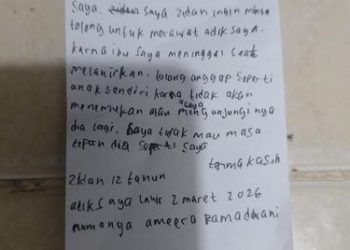 saya. saya zidan ingin minta
tolong untuk merawat adik saya.
karna ibu saya meninggal saat
melahirkan. tolong anggap seperti
anak sendiri karna saya tidak akan
menemukan atau mengunjungi nya
dia lagi. saya tidak mau masa
depan dia seperti saya
terima kasih
zidan 12 tahun
adik saya lahir 2 maret 2026
namanya ameera ramadhani